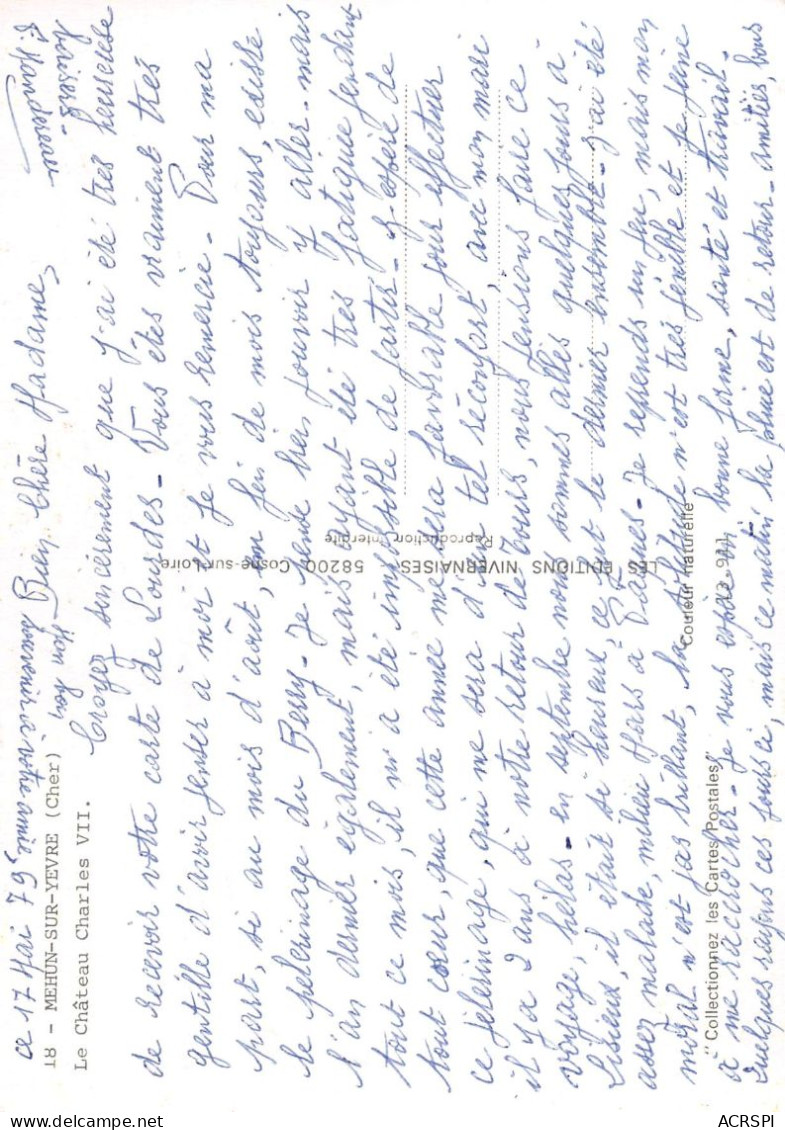 ce 17 Mai 79,
18 - MEHUN-SUR-YEVRE (Cher)
Le Château Charles VII.
Bien Chère Madame,
Croyez sincèrement que j'ai été très heureuse
de recevoir votre carte de Lourdes - Vous êtes vraiment très
gentille d'avoir penser à moi et je vous remercie - Pour ma
part, si au mois d'août, en fin de mois toujours, existe
le pèlerinage du Berry - Je pense bien pouvoir y aller - mais
l'an dernier également, mais ayant été très fatiguée pendant
tout ce mois, il m'a été impossible de partir - J'espère de
tout cœur, que cette année me sera favorable pour effectuer
ce pèlerinage, qui me sera d'un tel réconfort, avec mon mari
il y a 2 ans à notre retour de Tours, nous pensions faire ce
voyage, hélas - en septembre nous sommes allés quelques jours à
Lisieux, il était si heureux, ce fut le dernier ensemble - j'ai été
assez malade, milieu Mars à Pâques - Je reprends un peu, mais mon
moral n'est pas brillant, la solitude m'est très pénible et je peine
à me raccrocher - Je vous espère en bonne forme, santé et travail -
Quelques rayons ces jours ci, mais ce matin la pluie est de retour - Amitiés, bons
baisers -
mon bon souvenir à votre amie
LES EDITIONS NIVERNAISES 58200 Cosne-sur-Loire
Reproduction Interdite
Couleur naturelle
"Collectionnez les Cartes Postales"
ACRSPI